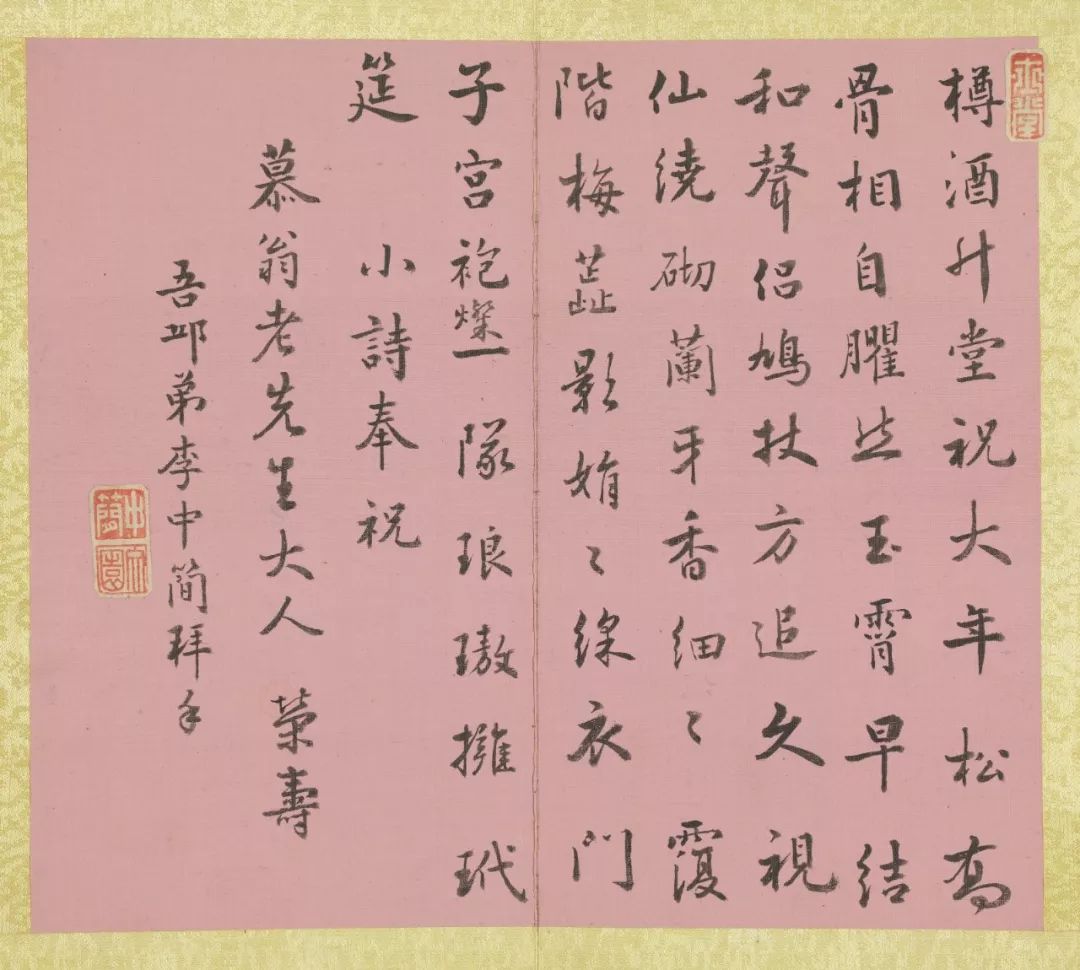 樽酒升堂祝大年松喬
骨相自臞然玉霄早結
和聲侣鳩杖方追久視
仙繞砌蘭牙香細〻覆
階梅蕋影娟〻綵衣門
子宮袍燦一隊琅璈擁玳
筵 小詩奉祝
慕翁老先生大人 榮壽
吾邱弟李中簡拜手